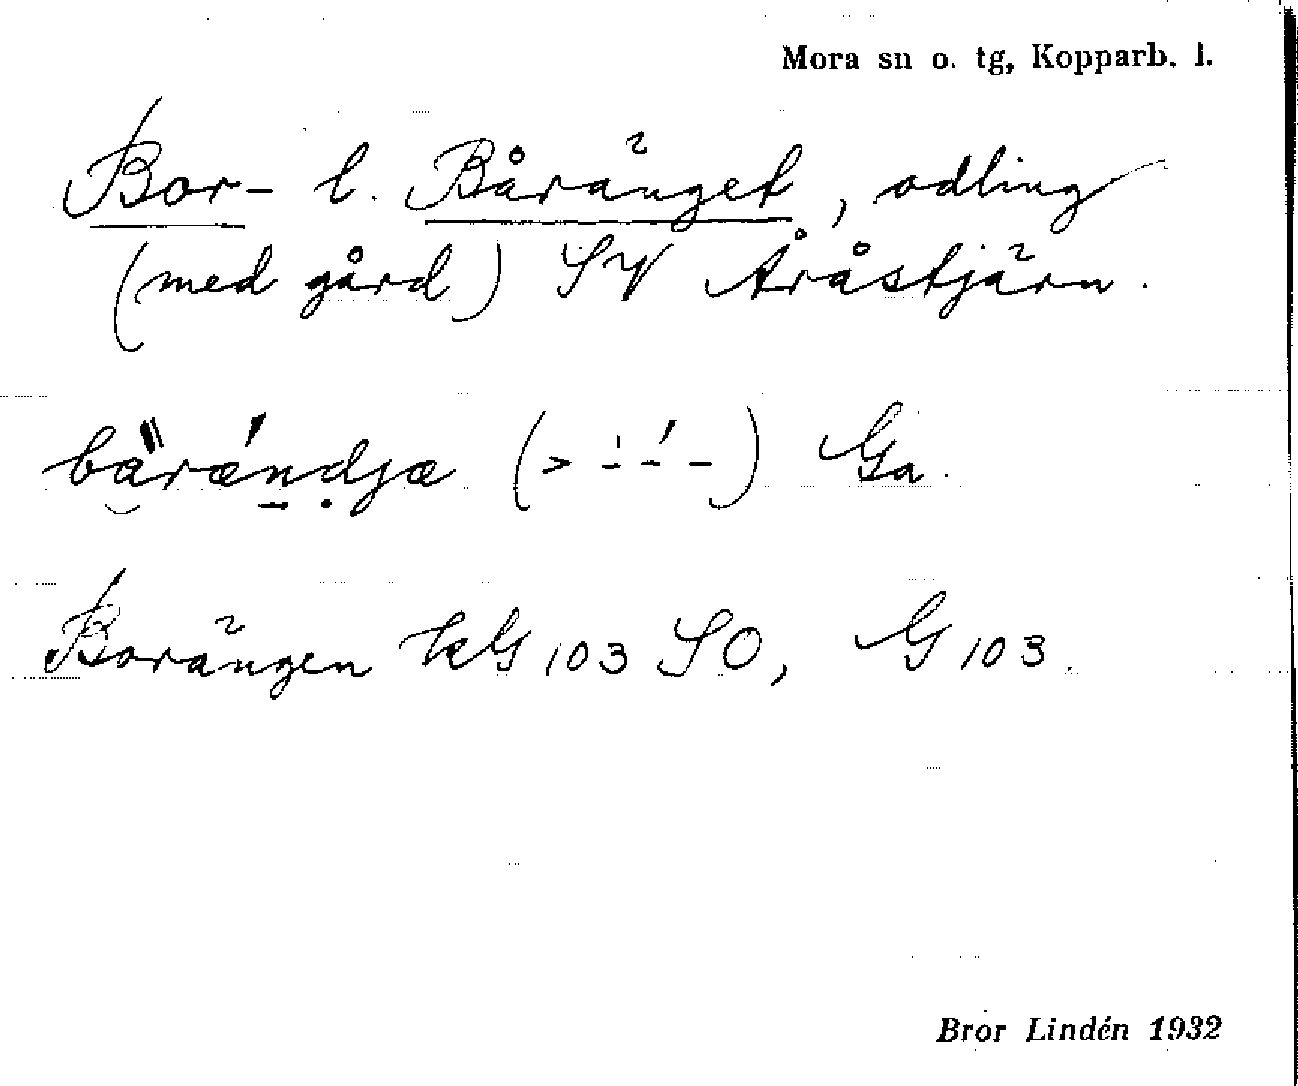 Mora sn o. tg, Kopparb. l.
Bor- l. Båränget, odling
(med gård) SV Åråstjärn.
bärændjæ (> -́ -́ -) Ga.
Borängen kG 103 SO, G 103.
Bror Lindén 1932